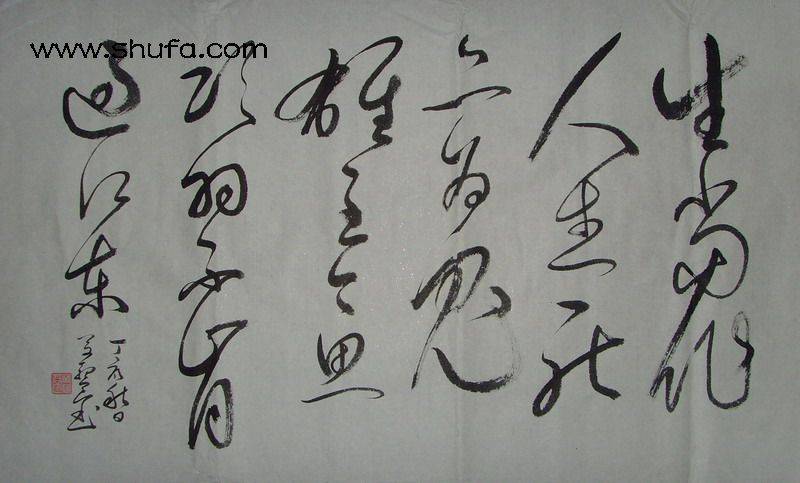 www.shufa.com
生当作
人杰死
亦为鬼
雄至今思
项羽不肯
过江东
丁亥秋日